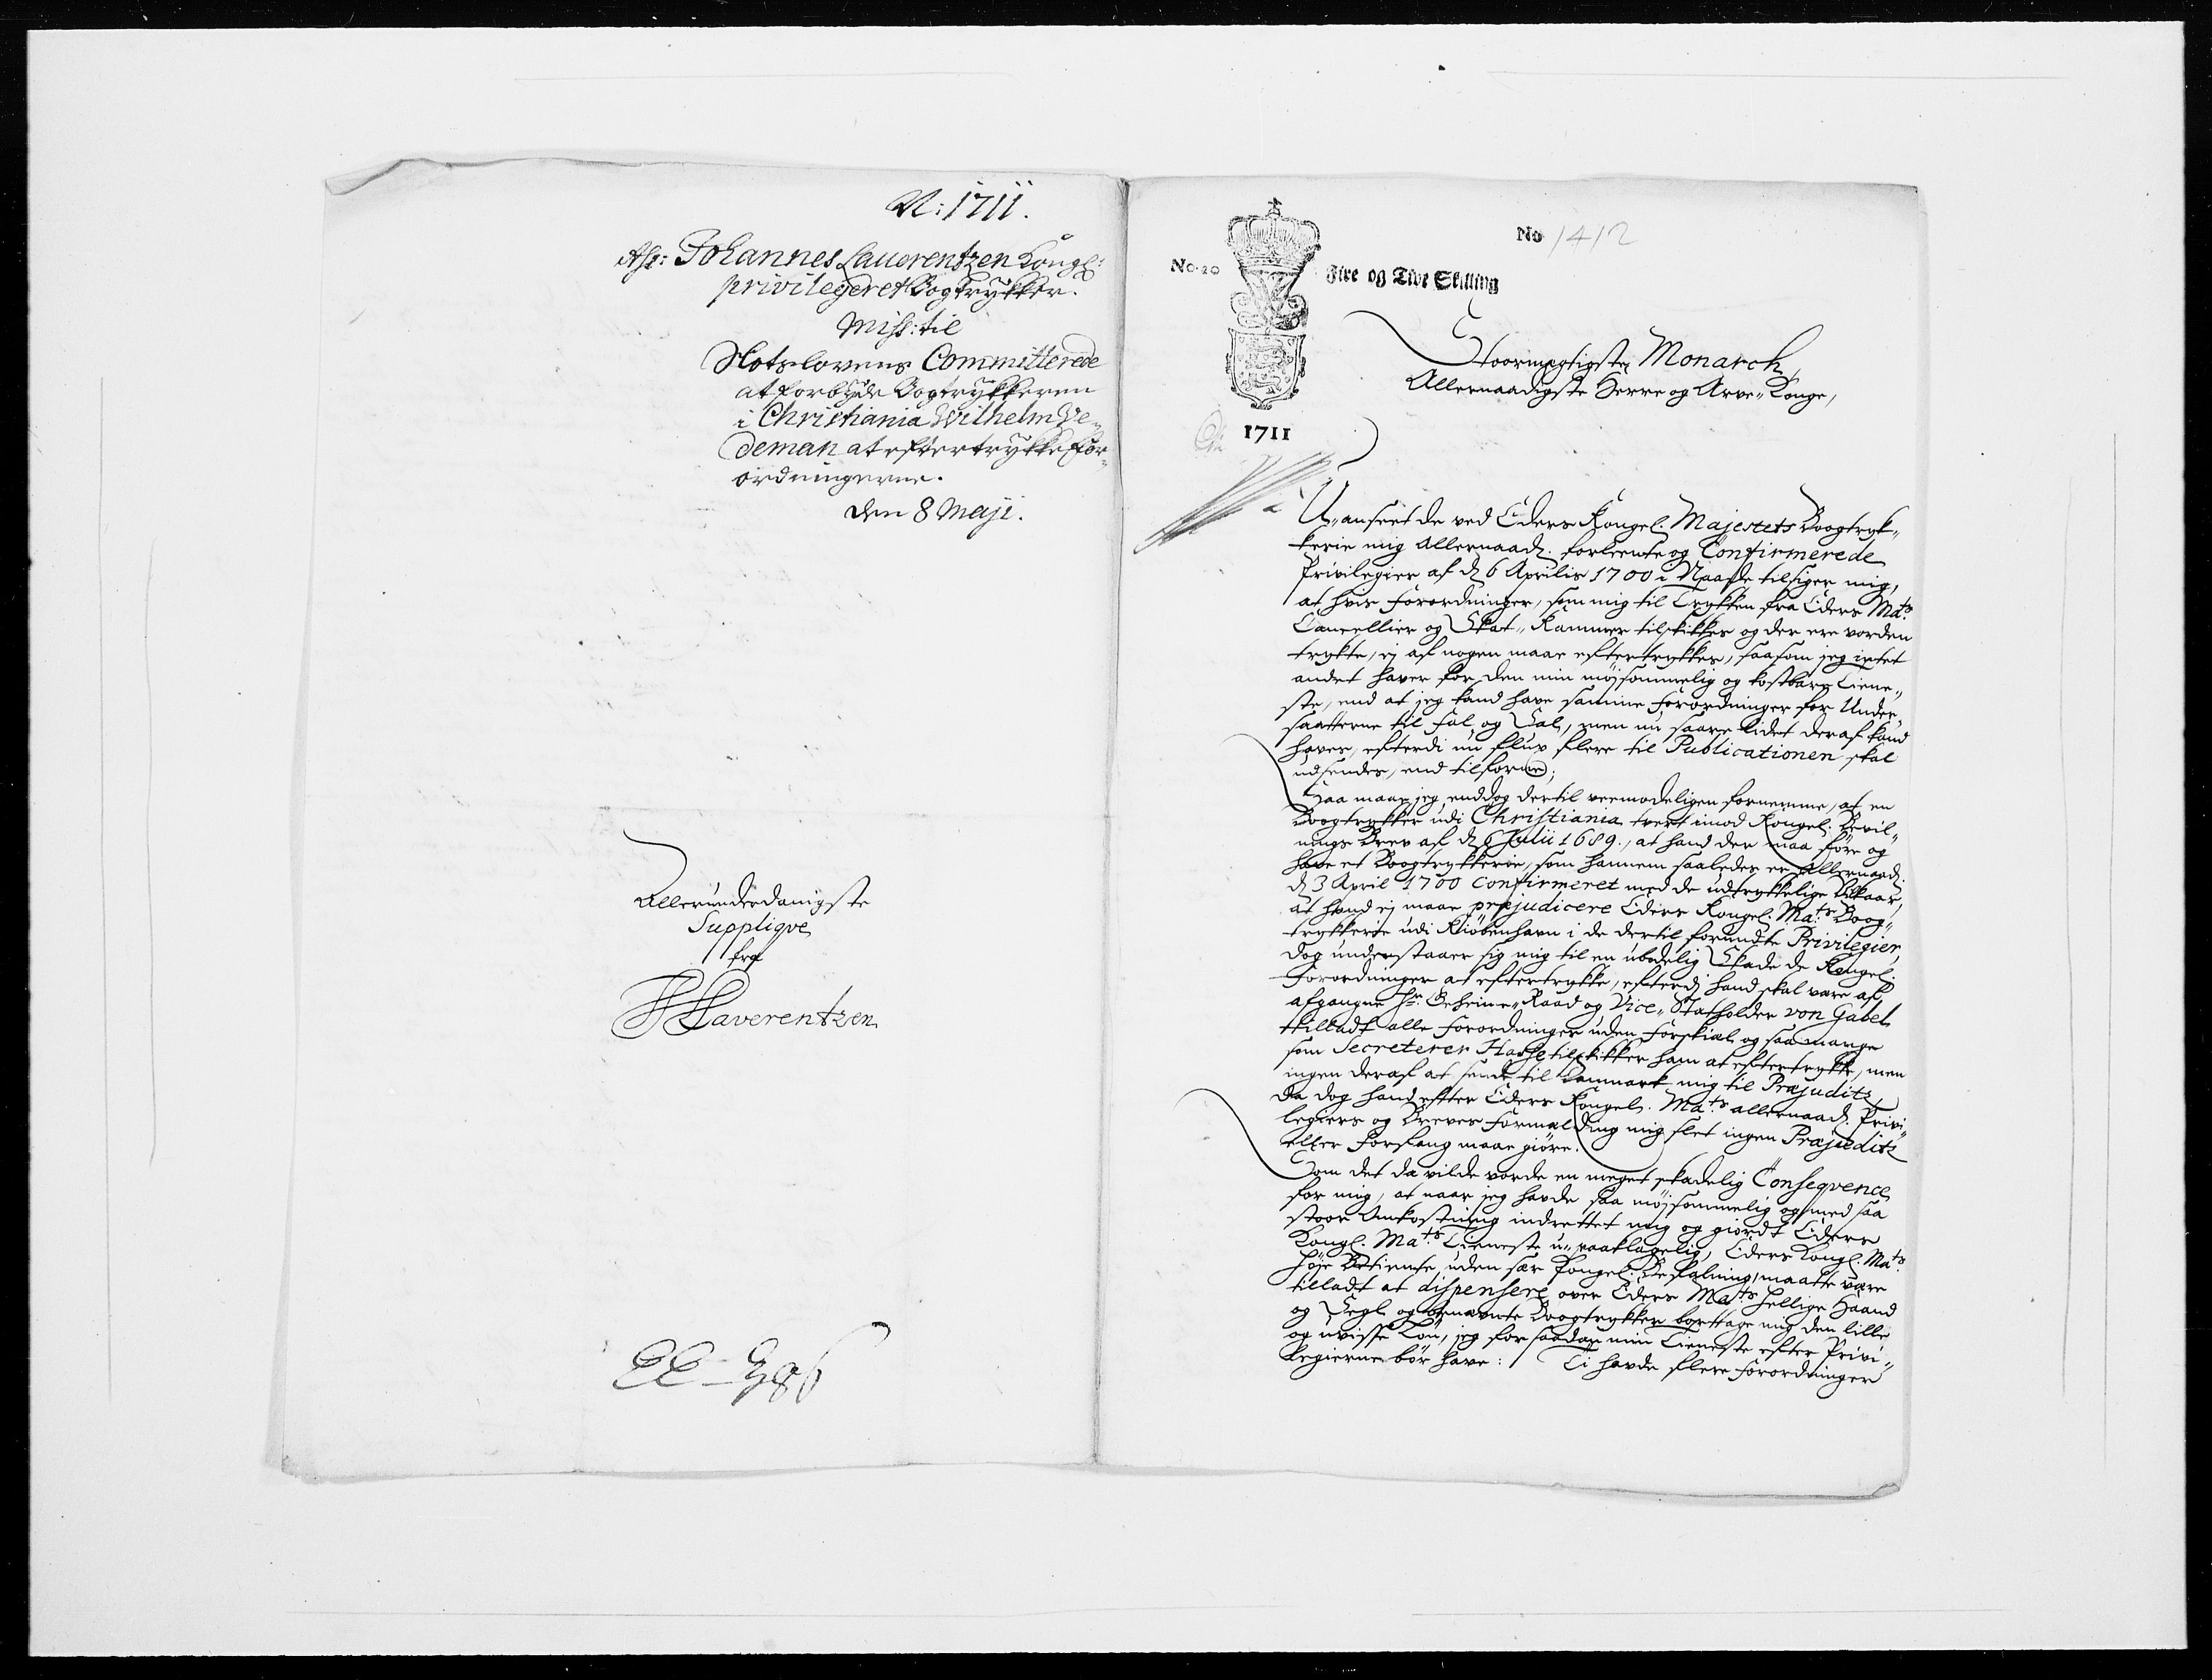 A: 1711.
Ass: Johannes Lauerentzen Kongl:
privilegeret Bogtrykker.
Miss: til
Slotslovens Committerede
at forbyde Bogtrykkeren
i Christiania Wilhelm We-
deman at eftertrykke for-
ordningerne.
den 8 Maji.
Allerunderdanigste
Suppliqve
fra
JLaverentzen
No 1412
No. 20
Fire og Tive Skilling
1711
Stoormægtigste Monarch,
Allernaadigste Herre og Arve-Konge,
U-anseet de ved Eders Kongel. Majestets Boogtryk-
kerie mig allernaad. forleente og Confirmerede
Privilegier af d. 6 Aprilis 1700 i Naade tilsiger mig,
at hvis forordninger, som mig til Trykken fra Eders Mats
Cancellier og Skat-Kammer tilskikkes og der ere vorden
trykte, ej af nogen maae eftertrykkes, saasom jeg intet
andet haver for den min møjsommelig og kostbare Tiene-
ste, end at jeg kand have samme forordninger for Under-
saatterne til fal og Sal, men nu saare lidet deraf kand
haves, efterdi nu flux flere til Publicationen skal
udsendes, end tilforne;
Saa maae jeg enddog dertil veemodeligen fornemme, at en
Boogtrykker udi Christiania tvert imod Kongel. Bevil-
nings Brev af d. 6 Julii 1689., at hand der maa føre og
have et Boogtrykkerie, som hannem saaledes er allernaad.
d. 3 April 1700 confirmeret med de udtrykkelige Vilkaar,
at hand ej maae præjudicere Eders Kongel. Mats Boog-
trykkerie udi Kiøbenhavn i de dertil forundte Privilegier,
dog understaaer sig mig til en ubodelig Skade de Kongel.
forordninger at eftertrykke, efterdi hand skal være af
afgangne Hr. Geheime-Raad og Vice-Statholder von Gabel
tilladt alle forordninger uden forskiæl og saa mange
som Secreterer Hasse tilskikker ham at eftertrykke, men
ingen deraf at sende til Danmark mig til Præjuditz,
da dog hand efter Eders Kongel. Mats allernaad. Privi-
legiers og Brevers formælding mig slet ingen Præjuditz
eller forfang maae giøre.
Som det da vilde vorde en meget skadelig Conseqvence
for mig, at naar jeg havde saa møjsommelig og med saa
stoor Omkostning indrettet mig og giordt Eders
Kongl. Mats Tieneste u-paaklagelig, Eders Kongl. Mats
høje Betiente uden sær Kongel. Befalning, maatte være
tilladt at dispensere over Eders Mats hellige Haand
og Segl og benævnte Boogtrykker borttage mig den lille
og uvisse Løn, jeg for saadan min Tieneste efter Privi-
legierne bør have: Ti havde flere forordninger